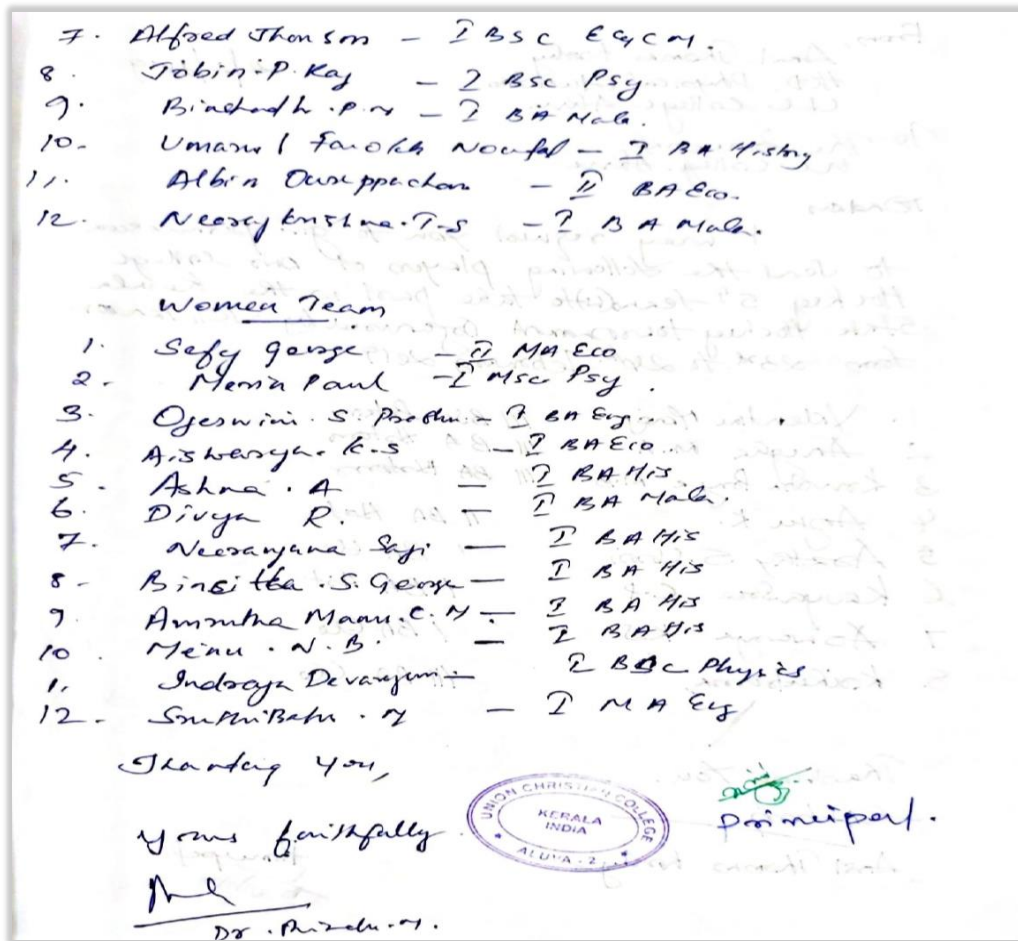 7. Alfred Jhonson - I BSC EGCM.
8. Jobin.P. Raj - I BSc Psy
9. P.M - I BA Mala.
10. Umarul Farokh Noufal - I BA History
11. Albin Ouseppachan - II BA Eco.
12. Neeraj Krishna.T-S - I BA Mala.
Women Team
1. Sefy George - II MA Eco
2. Merin Paul - I Msc Psy.
3. Ojeswini. S Prabhu - I BA Eng
4. Aiswarya. K.S - I BA Eco.
5. Ashna. A - I BA His
6. Divya R. - I BA Mala.
7. Neeranjana Saji - I BA His
8. Binsitta. S. George - I BA His
9. Amrutha Manu. C. M. - I BA His
10. Menu. N. B. - I BA His
11. Indraja - I BSc Physics
12. - I MA Eng
Thanking You,
Yours faithfully
UNION CHRISTIAN COLLEGE
KERALA
INDIA
ALUVA - 2
Principal.
Dr.